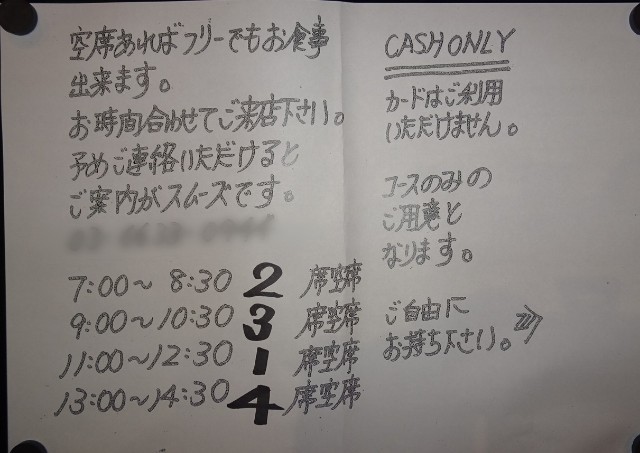 空席あればフリーでもお食事
出来ます。
お時間合わせてご来店下さい。
予めご連絡いただけると
ご案内がスムーズです。
7:00〜 8:30 2 席空席
9:00〜10:30 3 席空席
11:00〜12:30 1 席空席
13:00〜14:30 4 席空席
CASH ONLY
カードはご利用
いただけません。
コースのみの
ご用意と
なります。
ご自由に
お持ち下さい。